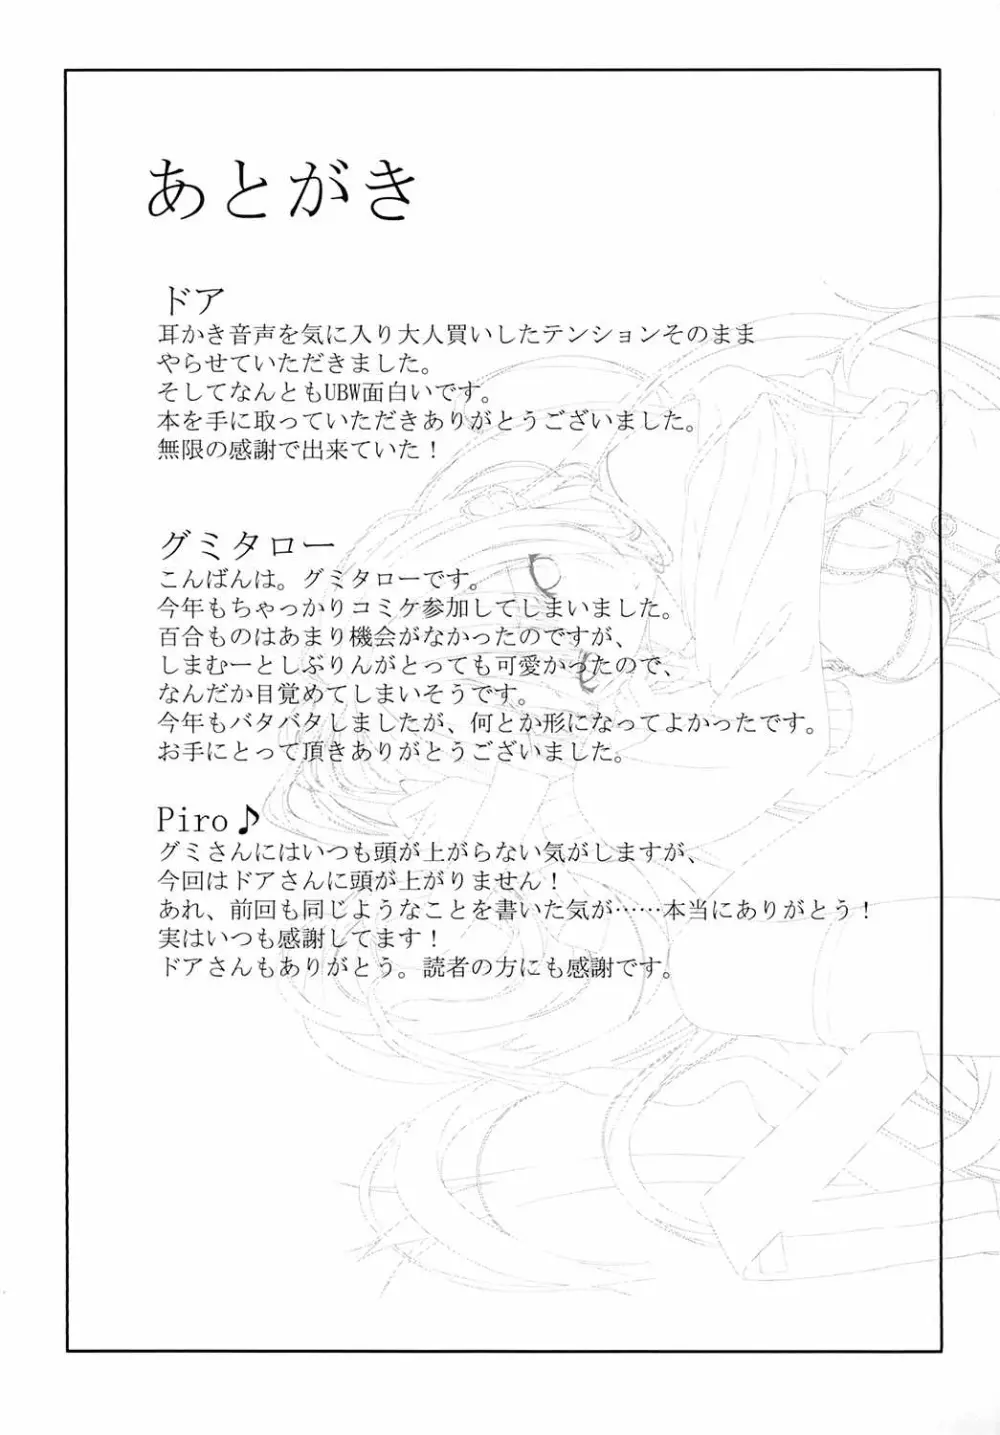 あとがき
ドア
耳かき音声を気に入り大人買いしたテンションそのまま
やらせていただきました。
そしてなんともUBW面白いです。
本を手に取っていただきありがとうございました。
無限の感謝で出来ていた！
グミタロー
こんばんは。グミタローです。
今年もちゃっかりコミケ参加してしまいました。
百合ものはあまり機会がなかったのですが、
しまむーとしぶりんがとっても可愛かったので、
なんだか目覚めてしまいそうです。
今年もバタバタしましたが、何とか形になってよかったです。
お手にとって頂きありがとうございました。
Piro♪
グミさんにはいつも頭が上がらない気がしますが、
今回はドアさんに頭が上がりません！
あれ、前回も同じようなことを書いた気が……本当にありがとう！
実はいつも感謝してます！
ドアさんもありがとう。読者の方にも感謝です。